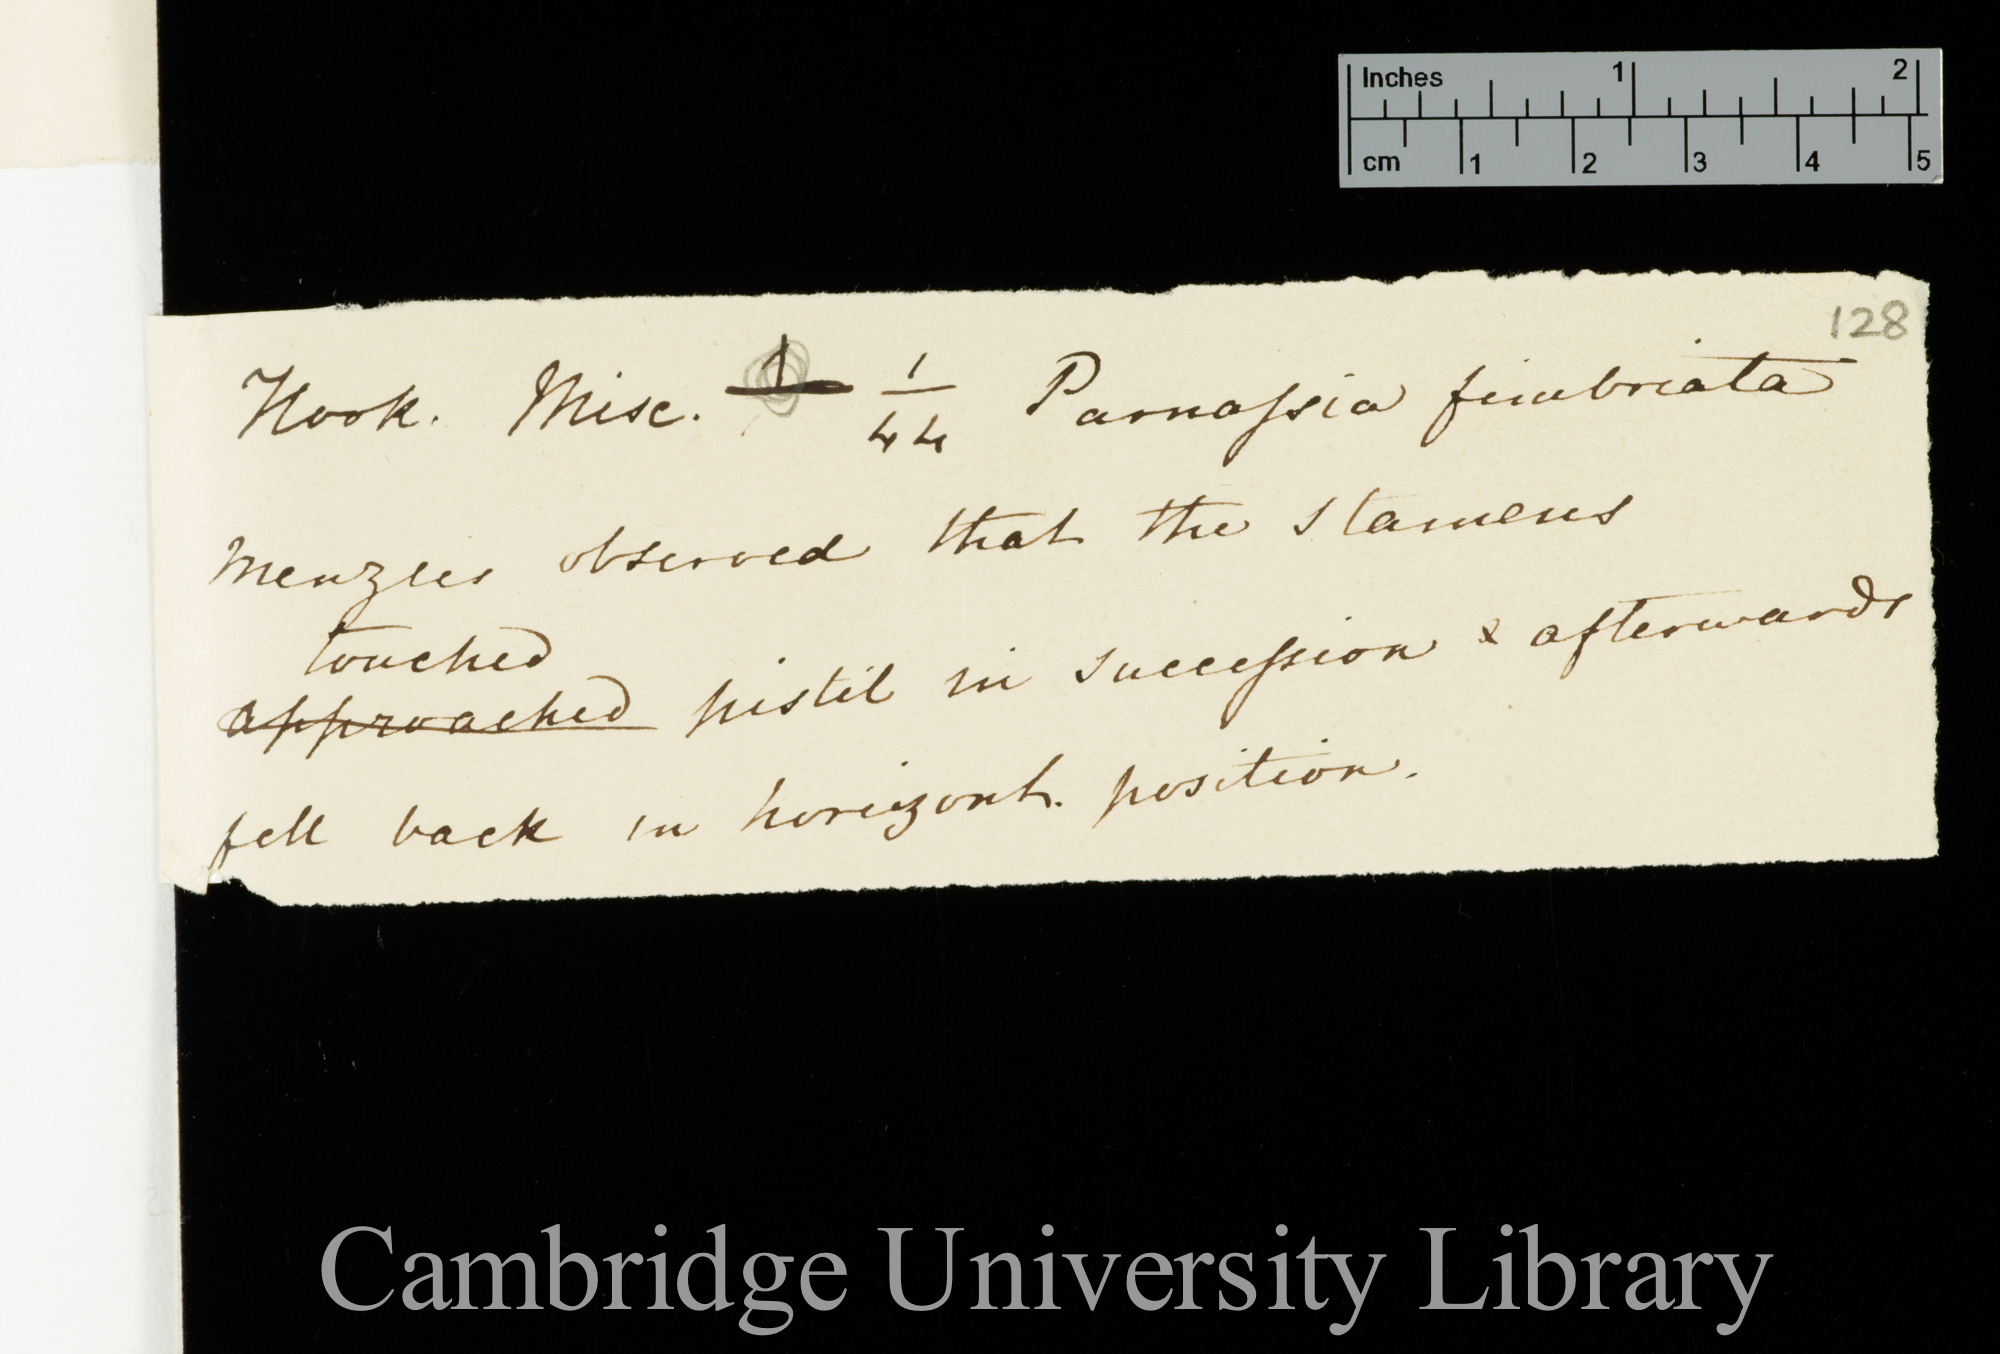 Inches 1 2
cm 1 2 3 4 5
128
Hook. Misc. 1 1/44 Parnaſsia fimbriata
Menzies observed that the stamens
touched
approached pistil in succeſsion & afterwards
fell back in horizont. position.
Cambridge University Library